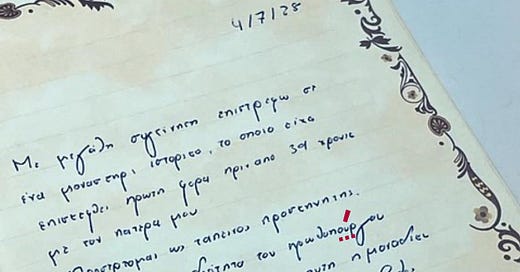 4/7/25
Με μεγάλη συγκίνηση επιστρέφω σε
ένα μοναστήρι ιστορικό, το οποίο είχα
επισκεφθεί πρώτη φορά πριν από 39 χρονια
με τον πατέρα μου
ως ταπεινος προσκυνητης.
του πρωθυπουργου
η μοναδικη